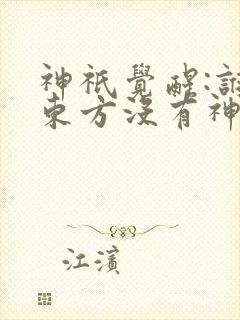 神祇覺醒:誰
東方沒有神
江濱